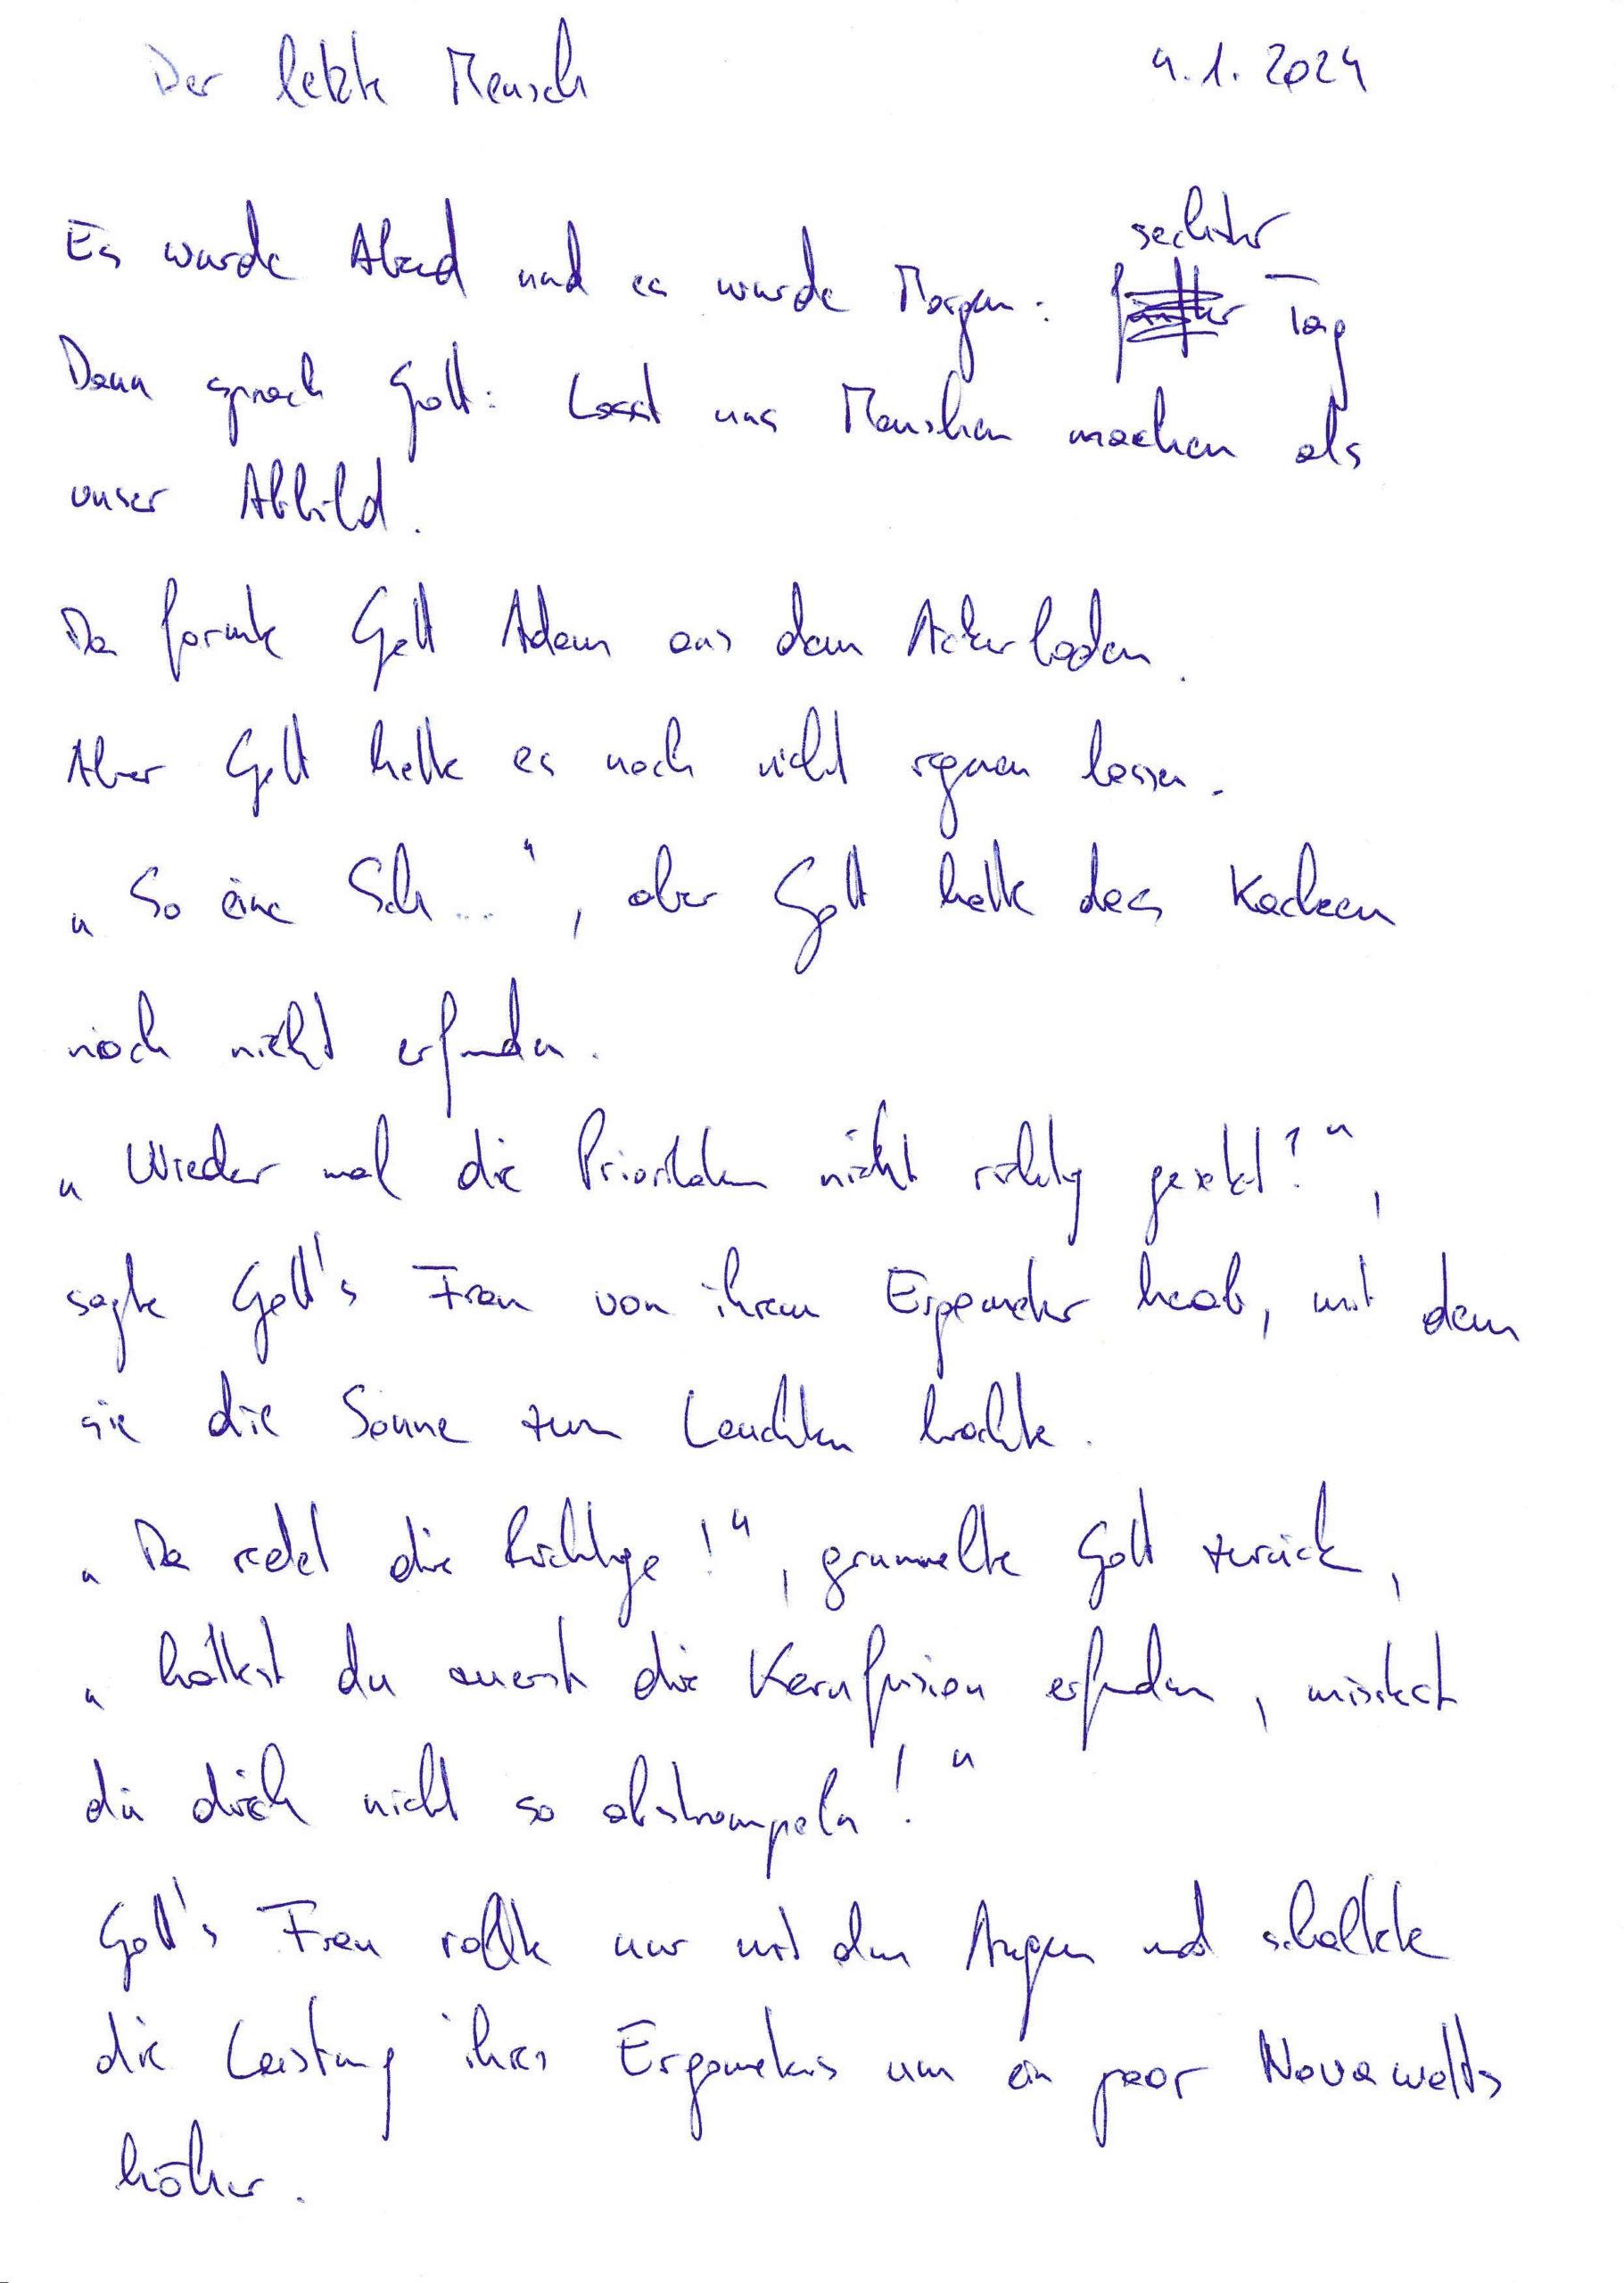 Der letzte Mensch 4.1.2024
sechster
Es wurde Abend und es wurde Morgen: fünfter Tag
Dann sprach Gott: Lasst uns Menschen machen als
unser Abbild.
Da formte Gott Adam aus dem Ackerboden.
Aber Gott hatte es noch nicht regnen lassen.
„So eine Sch...“, aber Gott hatte das Kacken
noch nicht erfunden.
„Wieder mal die Prioritäten nicht richtig gesetzt?“,
sagte Gott's Frau von ihrem Ergometer herab, mit dem
sie die Sonne zum Leuchten brachte.
„Da redet die Richtige!“, grummelte Gott zurück,
„hättest du zuerst die Kernfusion erfunden, müsstest
du dich nicht so abstrampeln!“
Gott's Frau rollte nur mit den Augen und schaltete
die Leistung ihres Ergometers um ein paar Novawatts
höher.